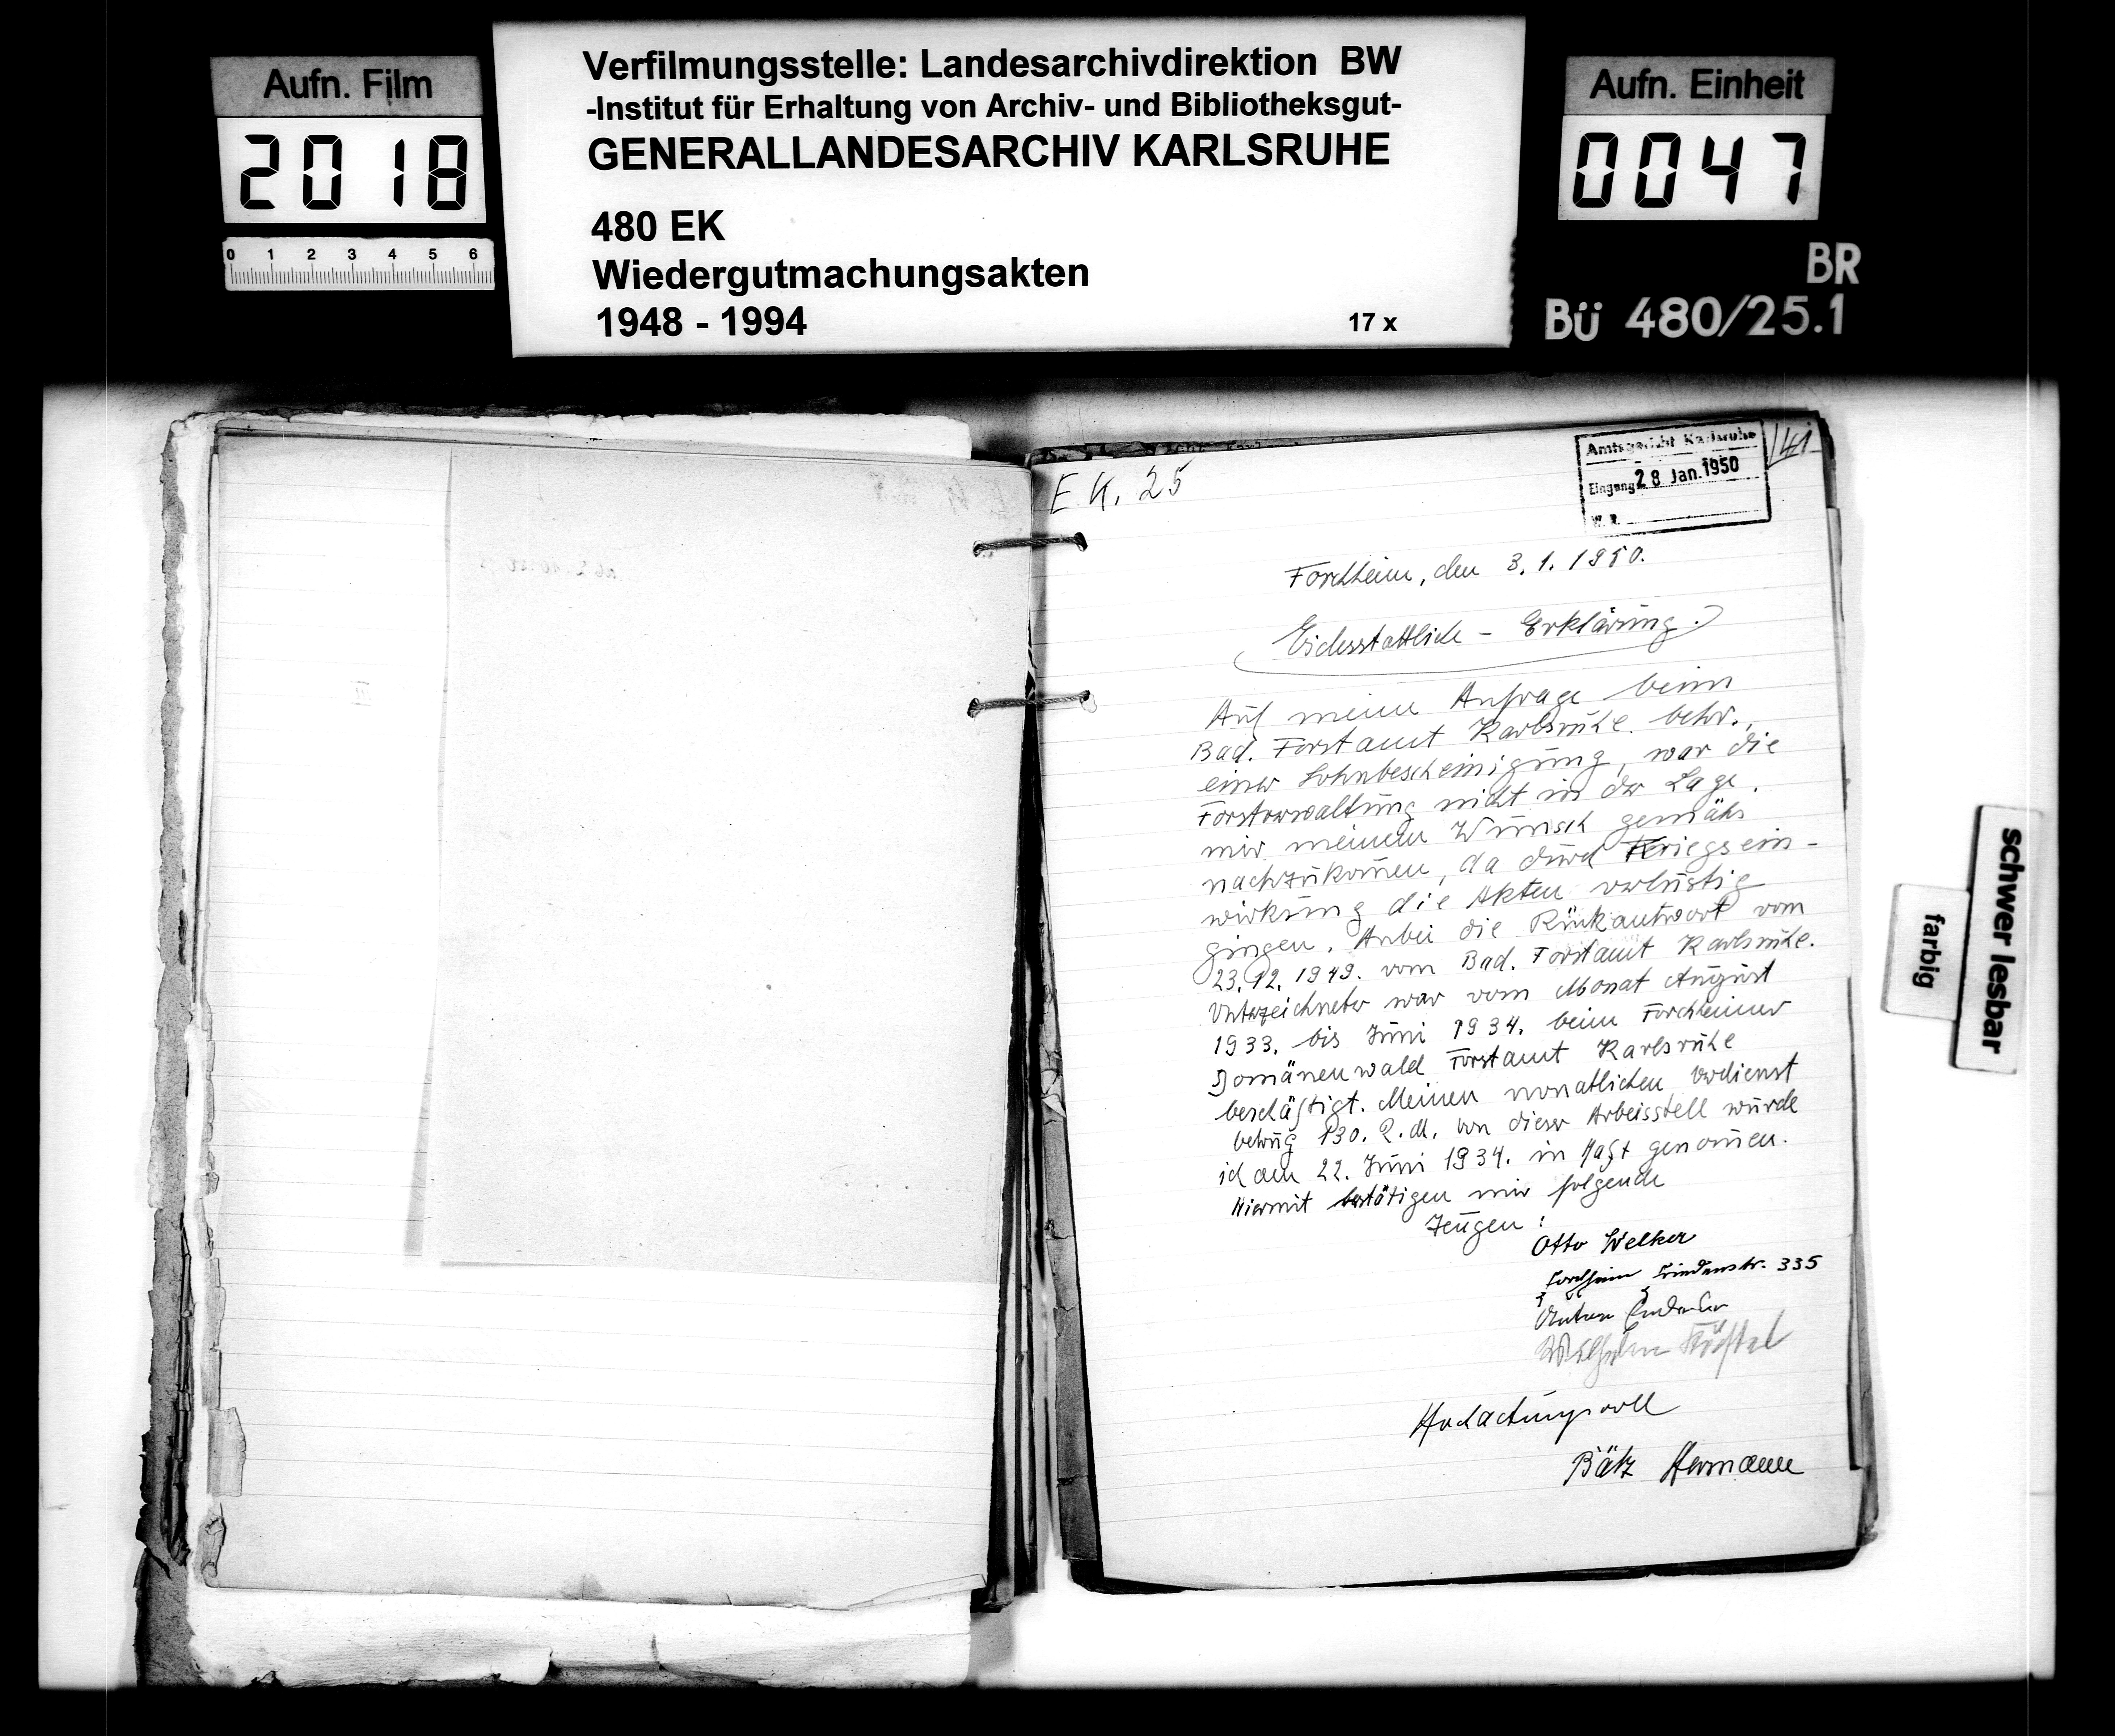 Aufn. Film
2018
0 1 2 3 4 5 6
Verfilmungsstelle: Landesarchivdirektion BW
-Institut für Erhaltung von Archiv- und Bibliotheksgut-
GENERALLANDESARCHIV KARLSRUHE
480 EK
Wiedergutmachungsakten
1948 - 1994
17 x
Aufn. Einheit
0047
BR
Bü 480/25.1
schwer lesbar
farbig
E.K. 25
Amtsgericht Karlsruhe
Eingang 28 Jan. 1950
41
Forchheim, den 3. 1. 1950.
Eidesstattliche - Erklärung.
Auf meine Anfrage beim
Bad. Forstamt Karlsruhe. betr.,
einer Lohnbescheinigung, war die
Forstverwaltung nicht in der Lage.
mir meinem Wunsch gemähs
nachzukomen, da durch Kriegsein-
wirkung die Akten verlustig
gingen. Anbei die Rückantwort vom
23.12.1949. vom Bad. Forstamt Karlsruhe.
Unterzeichneter war vom Monat August
1933. bis Juni 1934. beim Forchheimer
Domänenwald Forstamt Karlsruhe
beschäftigt. Meinen monatlichen Verdienst
betrug 130. R.M. Von dieser Arbeisstell wurde
ich am 22. Juni 1934. in Haft genomen.
Hiermit bestätigen mir folgende
Zeugen:
Otto Welker
Forchheim Friedenstr. 335
Anton
Wilhelm
Hochachtungsvoll
Bätz Hermann